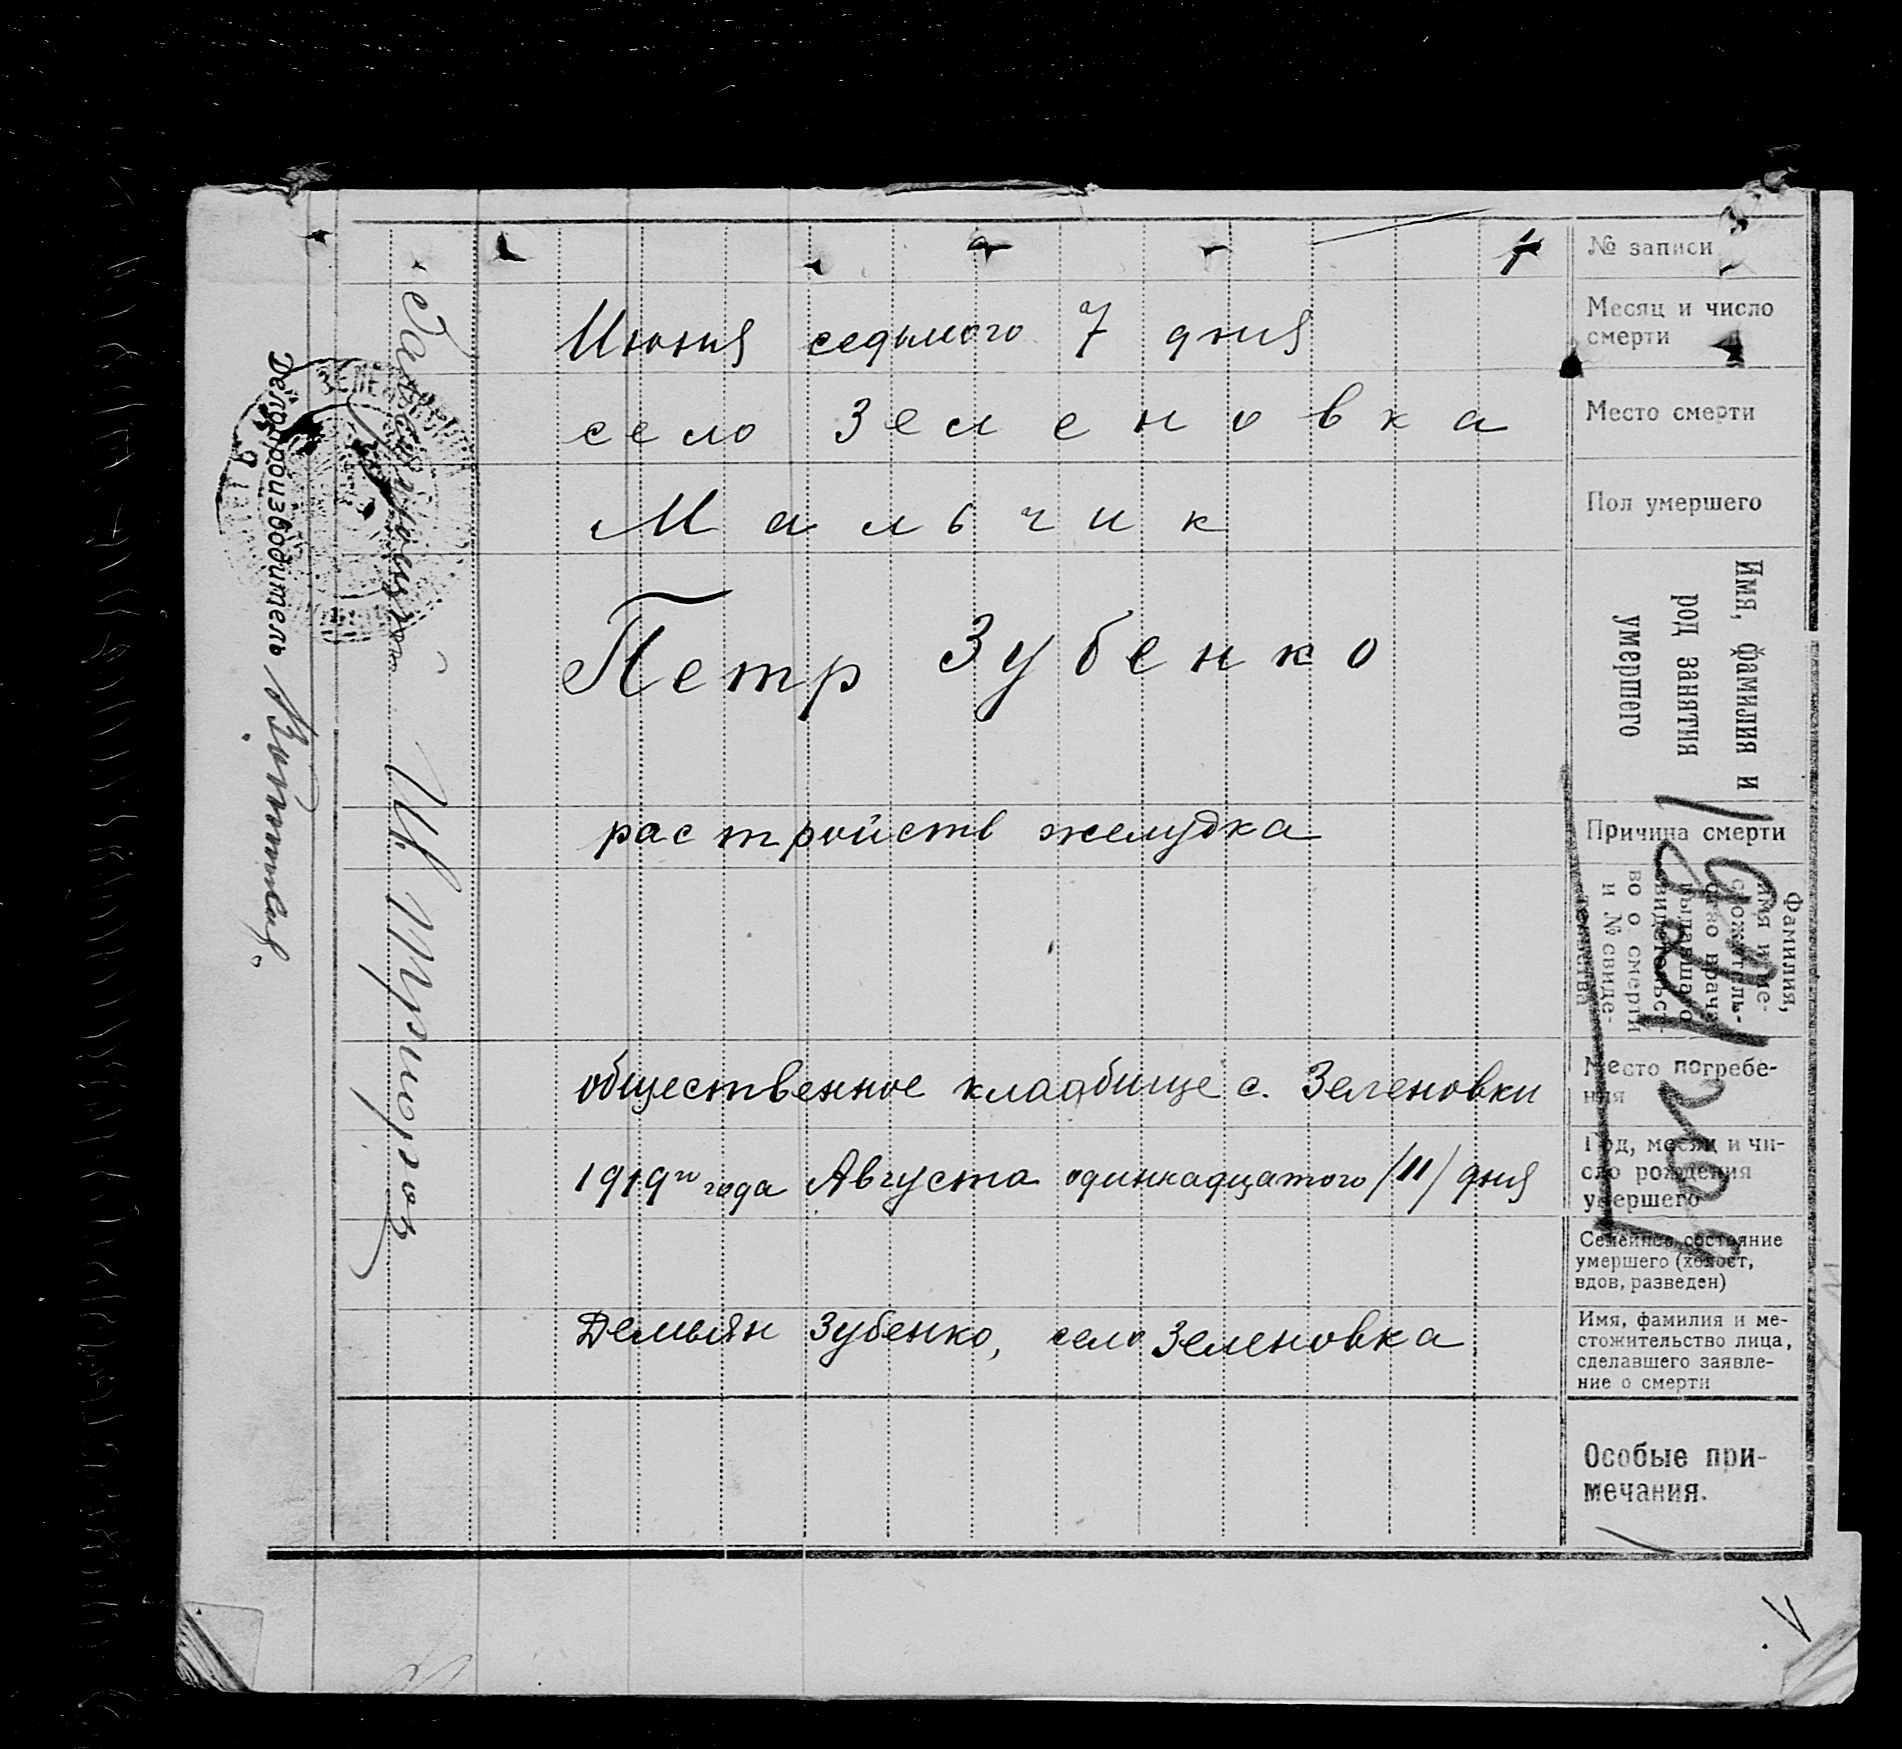 № записи
Месяц и число
смерти
Июня седьмого 7 дня
Место смерти
село Зеленовка
Пол умершего
Мальчик
Имя, фамилия и
род занятия
умершего
Петр Зубенко
Причина смерти
растройств желудка
Фамилия,
во о смерти
и № свиде-
Место погребе-
ния
общественное кладбище с. Зеленовки
Год, месяц и чи-
сло рождения
умершего
1919го года Августа одинкадцатого /11/ дня
Семейное состояние
умершего (холост,
вдов, разведен)
Имя, фамилия и ме-
стожительство лица,
сделавшего заявле-
ние о смерти
Демьян Зубенко, село Зеленовка
Особые при-
мечания.
Делопроизводитель